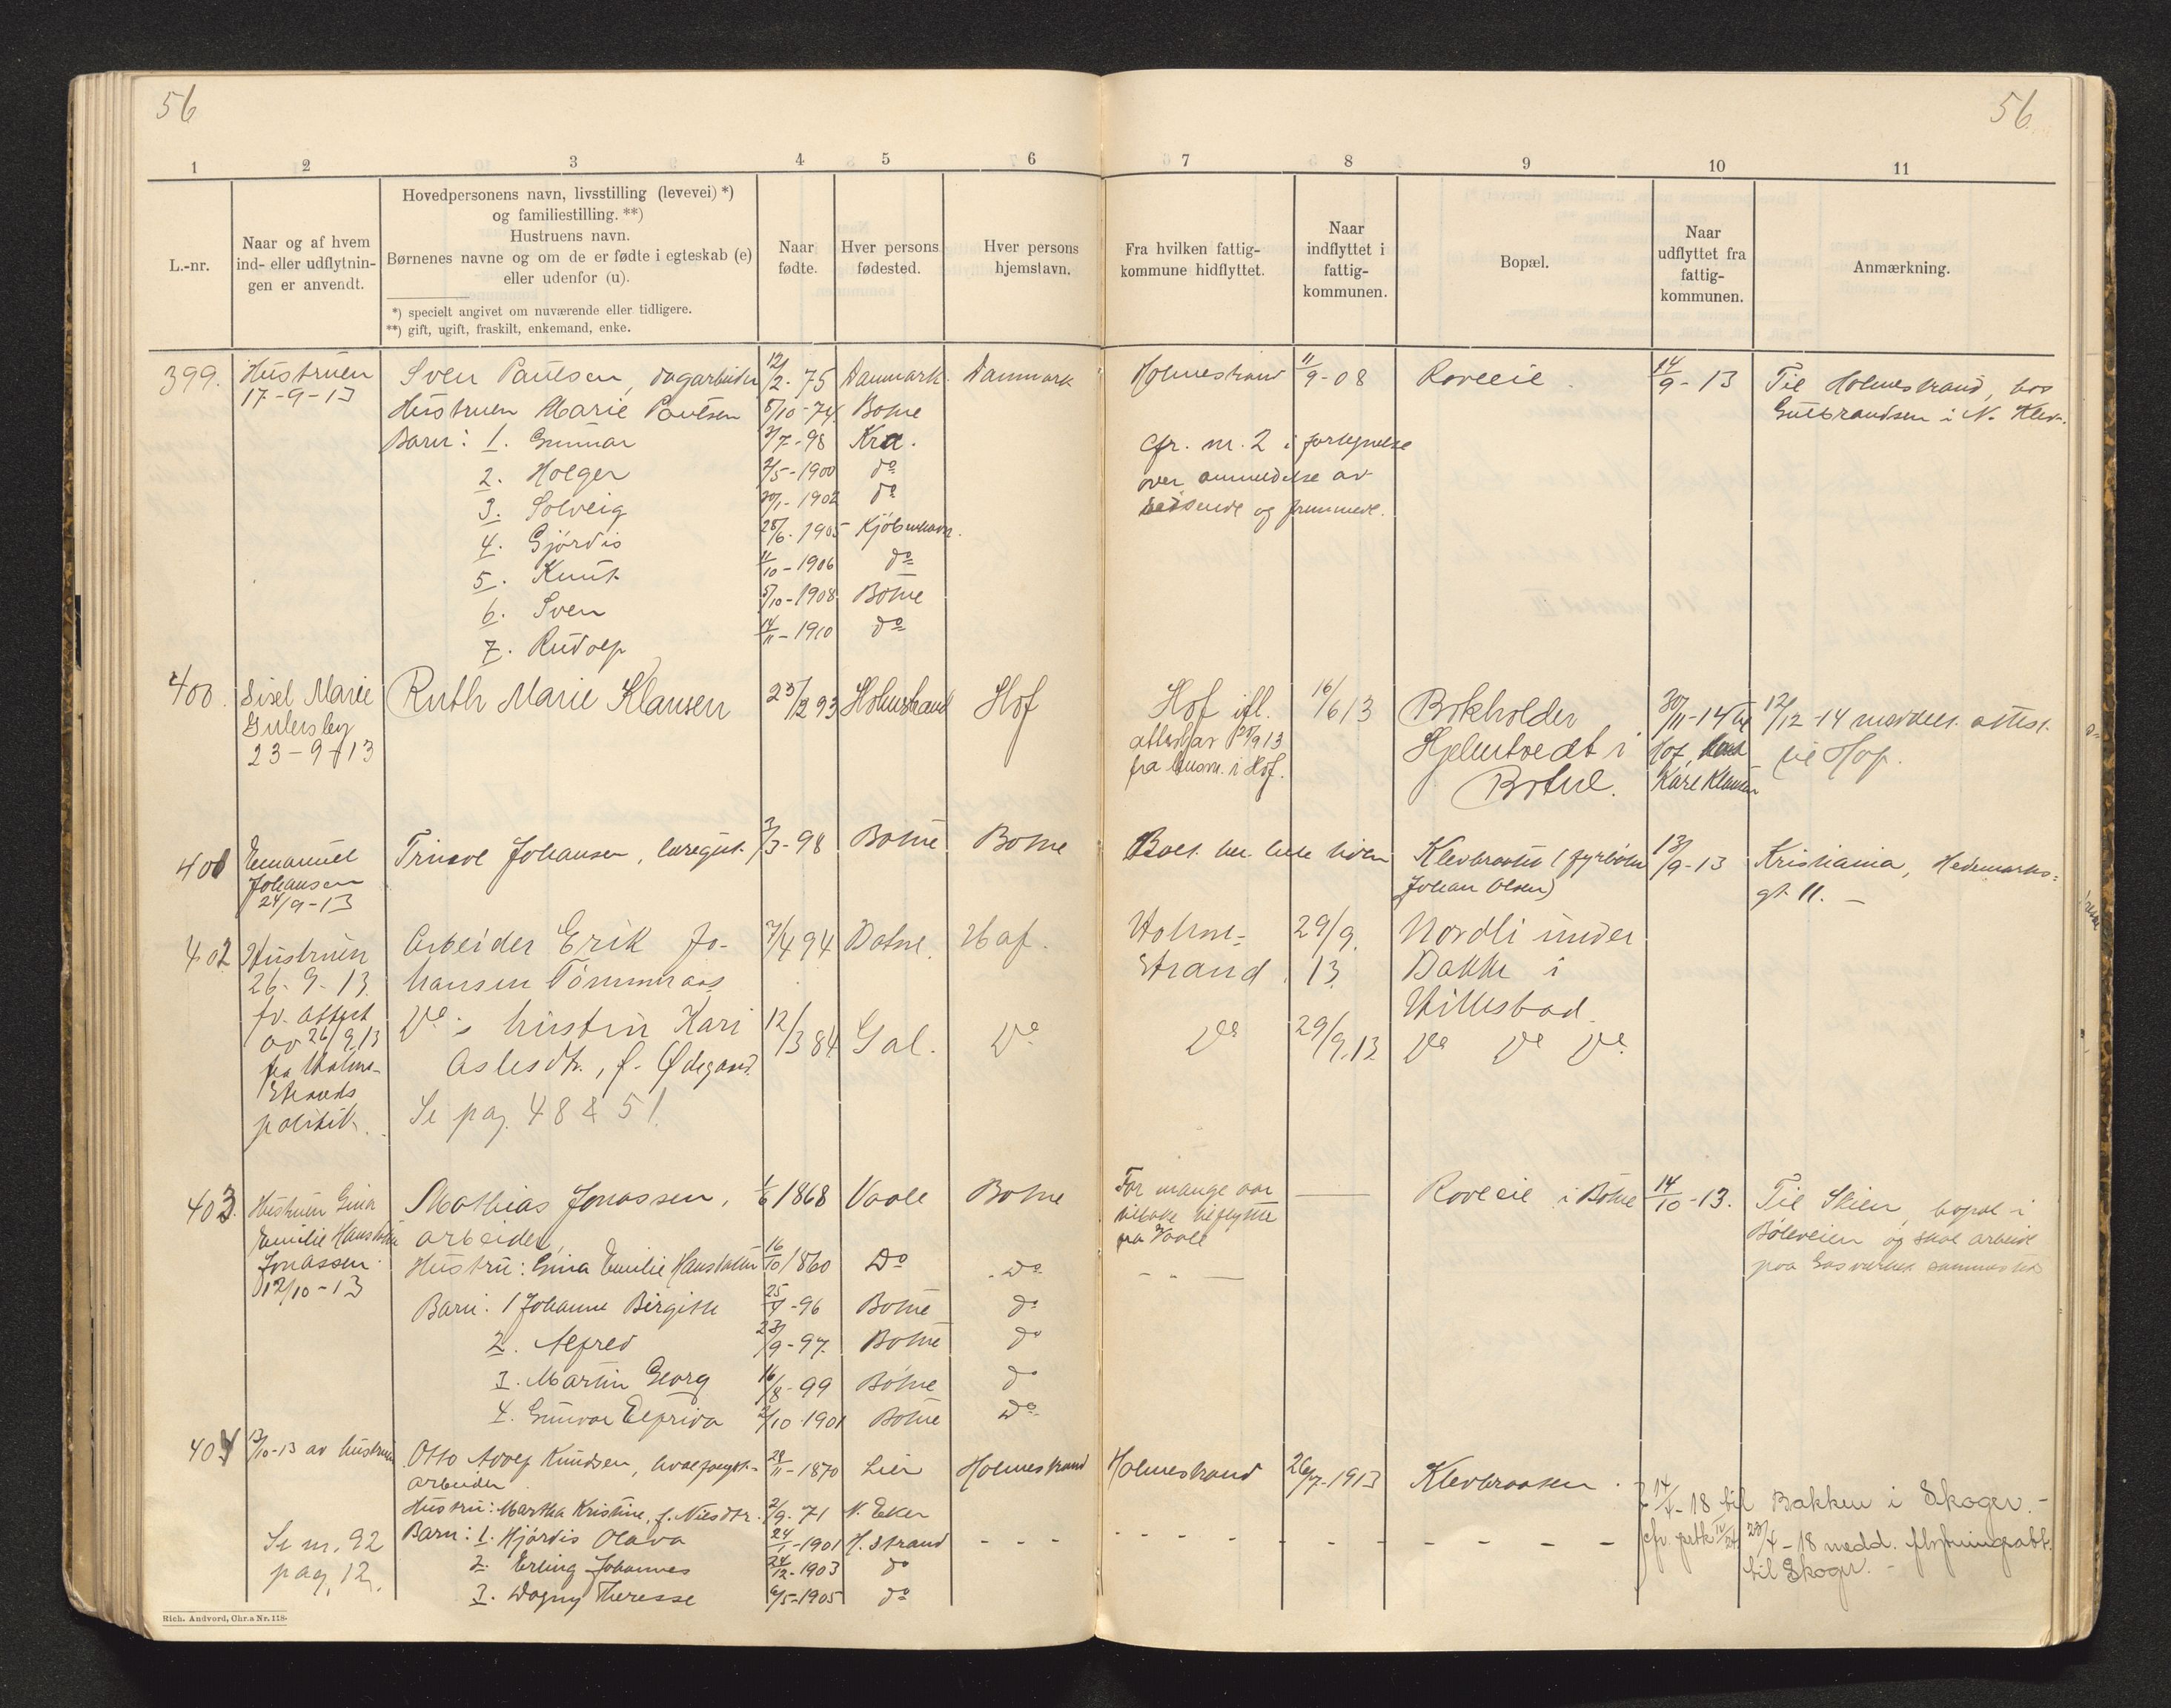 56
56
1 2 3 4 5 6 7 8 9 10 11
L.-nr.
Naar og af hvem
ind- eller udflytnin-
gen er anvendt.
Hovedpersonens navn, livsstilling (levevei) *)
og familiestilling. **)
Hustruens navn.
Børnenes navne og om de er fødte i egteskab (e)
eller udenfor (u).
*) specielt angivet om nuværende eller tidligere.
**) gift, ugift, fraskilt, enkemand, enke.
Naar
fødte.
Hver persons
fødested.
Hver persons
hjemstavn.
Fra hvilken fattig-
kommune hidflyttet.
Naar
indflyttet i
fattig-
kommunen.
Bopæl.
Naar
udflyttet fra
fattig-
kommunen.
Anmærkning.
399. Hustruen Sven Paulsen, dagarbeider 12/2-75 Danmark. Danmark Holmestrand 11/9-08 Roveeie. 14/9-13 Til Holmestrand, hos
17-9-13 Hustruen Marie Paulsen 5/10-74. Botne Gulbrandsen i N. Klev.
Barn: 1. Gunnar 3/7-98 Kra. Cfr. nr. 2 i fortegnelse
2. Holger 2/5-1900 do over anmeldelse av
3. Solveig 30/1-1902 do reisende og fremmede.
4. Gjördis 28/6-1905 Kjöbenhavn.
5. Knut 11/10-1906 do
6. Sven 5/10-1908 Botne
7. Rudolf 14/11-1910 do
400. Sisel Marie Ruth Marie Klausen 23/12 93 Holmestrand Hof Hof ifl. 16/6 13 Bokholder 30/11-14 til 12/12-14 meddelt attest
23-9-13 fra i Hof. Hjelmtvedt i Hof, til Hof.
Botne. Kare Klausen
401 Emanuel Johansen, 3/3-98 Botne Botne Boet her hele tiden Klevbraaten (fyrböter 13/9-13 Kristiania, Hedemarks-
Johansen Johan Olsen) gt. 11. -
24/9-13
402 Hustruen Arbeider Erik Jo- 7/4 94 Botne. Hof. Holme- 29/9. Nordli under
26-9-13. hansen Tömmeraas strand. 13 Bakke i
fr. attest Hillestad.
av 26/9 13 Do's hustru Kari 12/3 84 Gol. Do Do 29/9.13 Do Do Do
fra Holme- Aslesdtr., f. Ødegaard.
strands
politik. Se pag. 48 & 51.
403. Hustruen Gina Mathias Jonassen, 1/6 1868 Vaale Botne For mange aar — Roveeie i Botne 14/10-13. Til Skien, bopæl i
Emilie Hansdatter arbeider, tilbake tilflyttet Böleveien og skal arbeide
Jonassen fra Vaale paa Gasverket sammesteds
12/10-13 Hustru: Gina Emilie Hansdatter 16/10 1860 Do Do - „ -
Barn: 1 Johanne Birgitte -96 Botne do
2. Alfred 23/9-97. Botne do
3. Martin Georg 16/8-99 Botne do
4. Gunvor Elfrida 2/10-1901 Botne Do
404 13/10-13 av hustruen Otto Adolf Knudsen, hvalfangst- 28/11-1870 Lier Holmestrand Holmestrand 26/7-1913 Klevbraaten.
arbeider
Hustru: Martha Kristine, f. Nilsdtr. 2/9-71 N. Eker -18 til Bakken i Skoger. -
Se nr. 92 Barn: 1. Hjördis Olava 24/1-1901 H.strand - - - 23/4-18 medd. flytningsatt.
pag. 12. 2. Erling Johannes 24/12-1903 do til Skoger. -
3. Dagny Theresse 6/5-1905 do
Rich. Andvord, Chr.a Nr. 118.